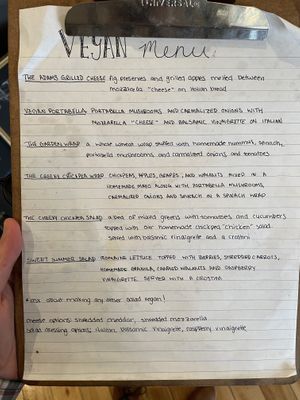 UNIVERSAL
VEGAN Menu
THE ADAMS GRILLED CHEESE fig preserves and grilled apples melted between
mozzarella "cheese" on Italian bread
VEGAN PORTABELLA PORTABELLA MUSHROOMS AND CARMALIZED ONIONS WITH
MOZZARELLA "CHEESE" AND BALSAMIC VINAIGRETTE ON ITALIAN
THE GARDEN WRAP a whole wheat wrap stuffed with homemade hummus, spinach,
portabella mushrooms and carmalized onions and tomatoes
THE CHEEKY CHICKPEA WRAP CHICKPEAS, APPLES, GRAPES, AND WALNUTS MIXED IN A
HOMEMADE MAYO ALONG WITH PORTABELLA MUSHROOMS,
CARMALIZED ONIONS AND SPINACH IN A SPINACH WRAP
THE CHEEKY CHICKPEA SALAD a bed of mixed greens with tomatoes, and cucumbers
topped with our homemade chickpea "chicken" salad
served with balsamic vinaigrette and a crostini
SWEET SUMMER SALAD ROMAINE LETTUCE TOPPED WITH BERRIES, SHREDDED CARROTS,
HOMEMADE GRANOLA, CANDIED WALNUTS AND RASPBERRY
VINAIGRETTE SERVED WITH A CROSTINI
* ask about making any other salad vegan!
cheese options: shredded cheddar, shredded mozzarella
salad dressing options: italian, balsamic vinaigrette, raspberry vinaigrette